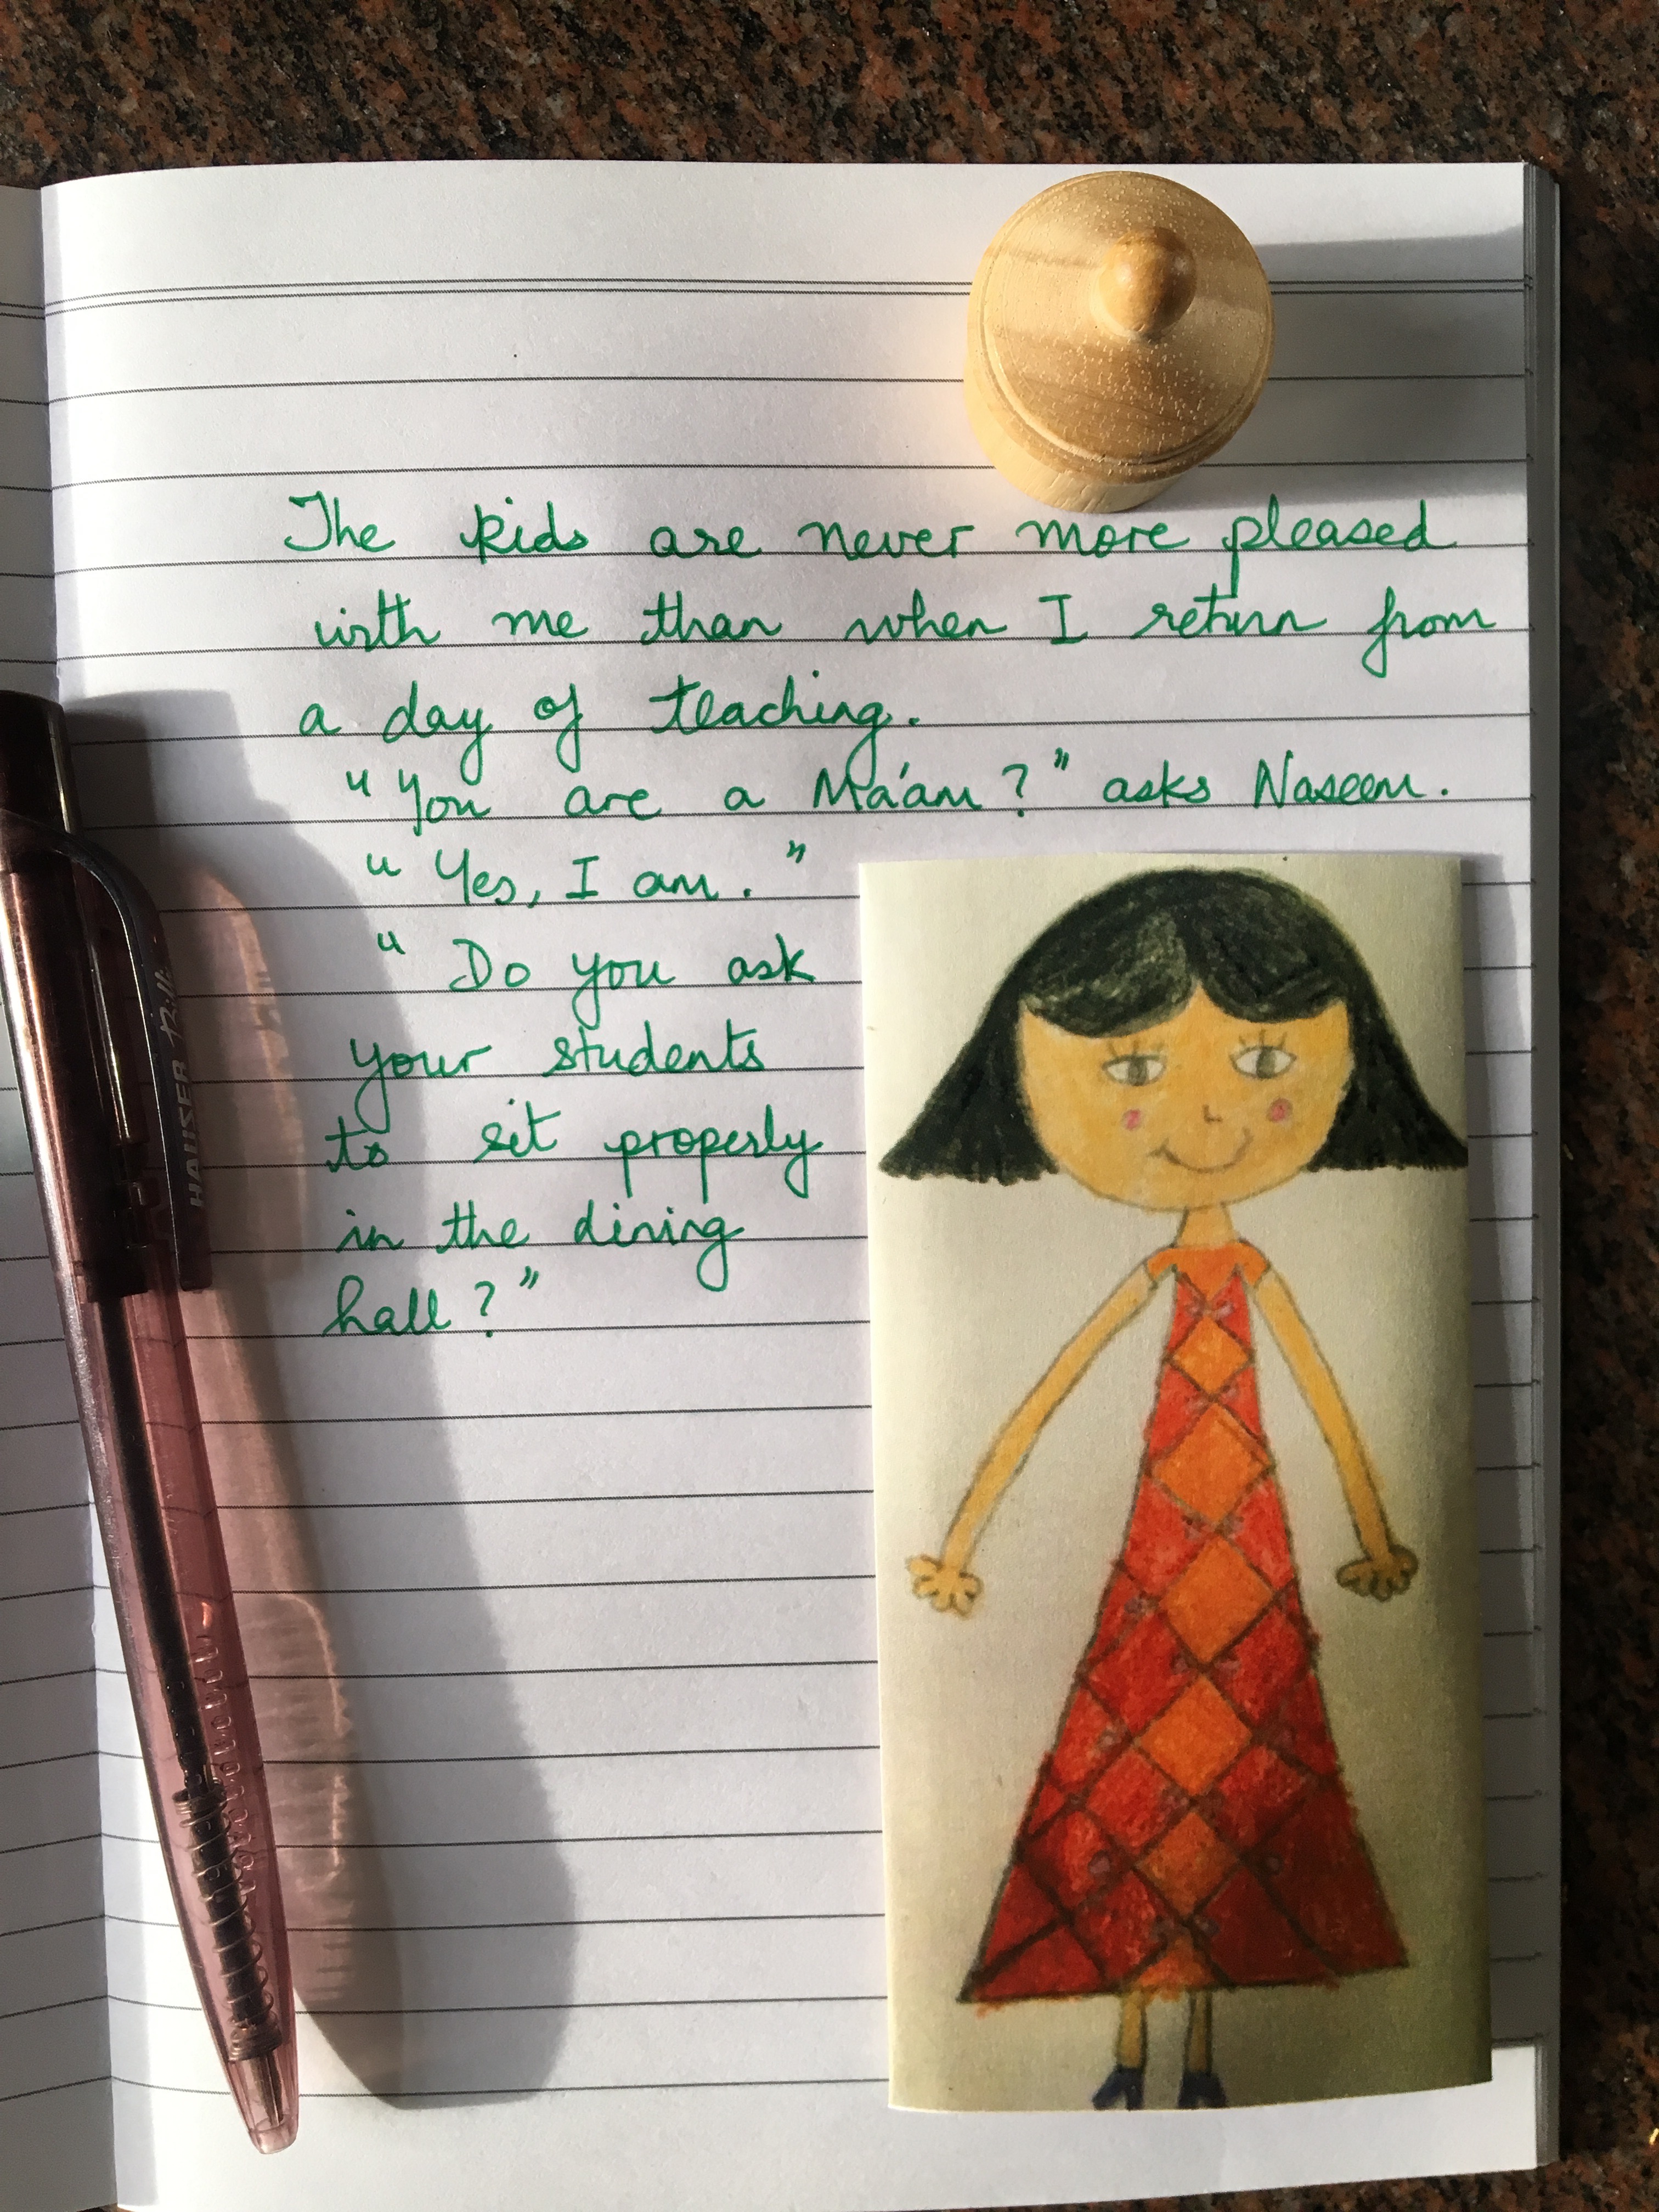 The kids are never more pleased
with me than when I return from
a day of teaching.
"You are a Ma'am?" asks Naseem.
"Yes, I am."
"Do you ask
your students
to sit properly
in the dining
hall?"
HAUSER